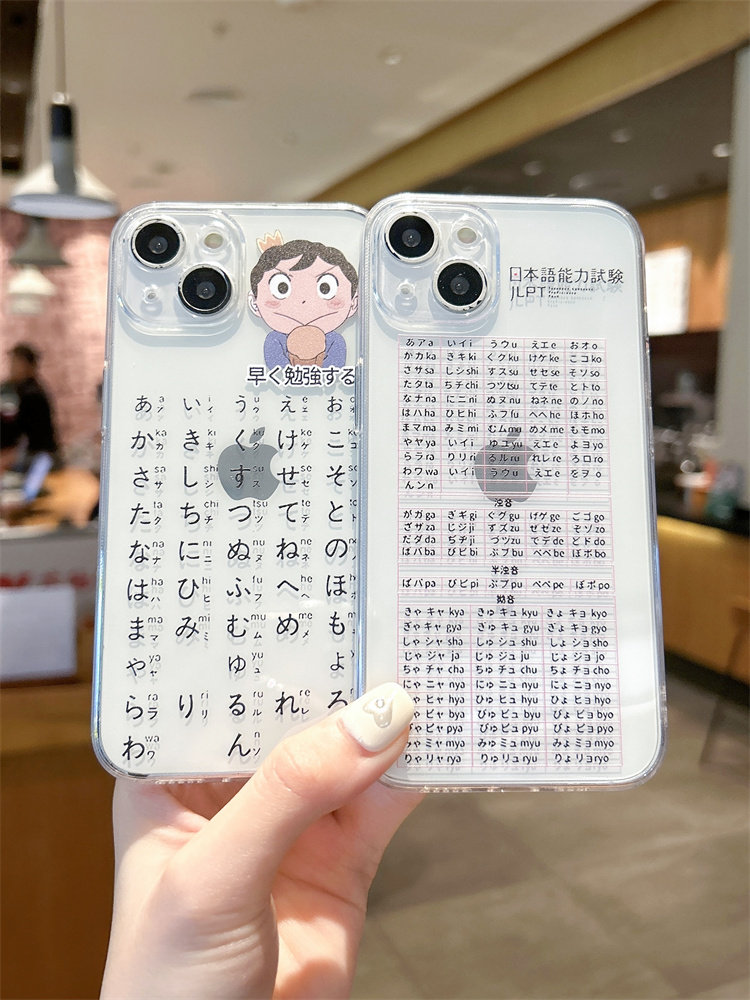 早く勉強する
あ ア い イ う ウ え エ お
か ka カ き ki キ く ku ク け ke ケ こ ko コ
さ sa サ し shi シ す su ス せ se セ そ
た ta タ ち chi チ つ tsu ツ て te テ と
な na ナ に ni ニ ぬ nu ヌ ね ne ネ の
は ha ハ ひ hi ヒ ふ fu フ へ he ヘ ほ
ま ma マ み mi ミ む mu ム め me メ も
や ya ヤ ゆ yu ユ よ
ら ra ラ り ri リ る ru ル れ re レ ろ
わ wa ワ ん n ン
日本語能力試験
JLPT
あアa いイi うウu えエe おオo
かカka きキki くクku けケke こコko
さサsa しシshi すスsu せセse そソso
たタta ちチchi つツtsu てテte とトto
なナna にニni ぬヌnu ねネne のノno
はハha ひヒhi ふフfu へヘhe ほホho
まマma みミmi むムmu めメme もモmo
やヤya いイi ゆユyu えエe よヨyo
らラra りリri るルru れレre ろロro
わワwa いイi うウu えエe をヲo
んンn
浊音
がガga ぎギgi ぐグgu げゲge ごゴgo
ざザza じジji ずズzu ぜゼze ぞゾzo
だダda ぢヂji づヅzu でデde どドdo
ばバba びビbi ぶブbu べベbe ぼボbo
半浊音
ぱパpa ぴピpi ぷプpu ぺペpe ぽポpo
拗音
きゃ キャ kya きゅ キュ kyu きょ キョ kyo
ぎゃ ギャ gya ぎゅ ギュ gyu ぎょ ギョ gyo
しゃ シャ sha しゅ シュ shu しょ ショ sho
じゃ ジャ ja じゅ ジュ ju じょ ジョ jo
ちゃ チャ cha ちゅ チュ chu ちょ チョ cho
にゃ ニャ nya にゅ ニュ nyu にょ ニョ nyo
ひゃ ヒャ hya ひゅ ヒュ hyu ひょ ヒョ hyo
びゃ ビャ bya びゅ ビュ byu びょ ビョ byo
ぴゃ ピャ pya ぴゅ ピュ pyu ぴょ ピョ pyo
みゃ ミャ mya みゅ ミュ myu みょ ミョ myo
りゃ リャ rya りゅ リュ ryu りょ リョ ryo